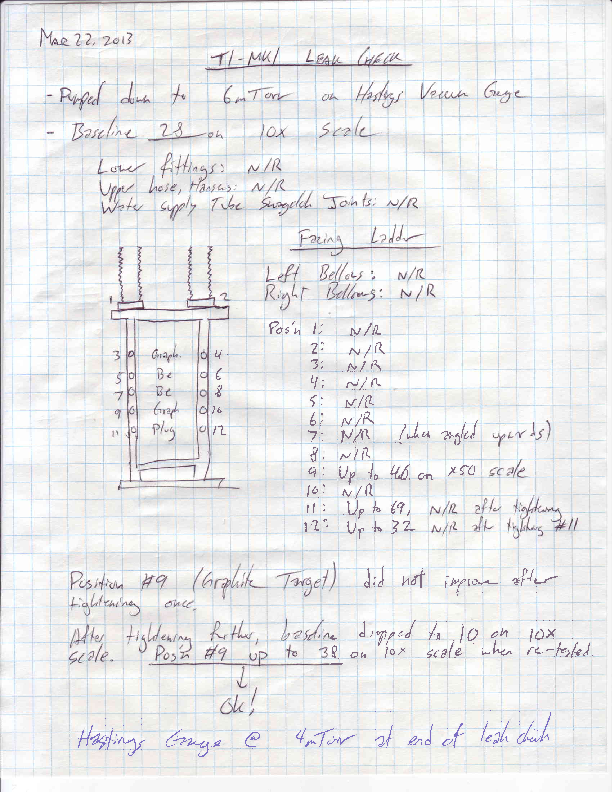 Mar 22, 2013
T1-MK1 LEAK CHECK
- Pumped down to 6mTorr on Hastings Vacuum Gauge
- Baseline 28 on 10x Scale
Lower fittings: N/R
Upper hose, Hansens: N/R
Water supply Tube Swagelok Joints: N/R
Facing Ladder
Left Bellows: N/R
Right Bellows: N/R
1 2
3 Graph. 4
5 Be 6
7 Be 8
9 Graph 10
11 Plug 12
Pos'n 1: N/R
2: N/R
3: N/R
4: N/R
5: N/R
6: N/R
7: N/R (when angled upwards)
8. N/R
9: Up to 40 on x50 scale
10: N/R
11: Up to 69, N/R after tightening
12: Up to 32 N/R after tightening #11
Position #9 (Graphite Target) did not improve after
tightening once.
After tightening further, baseline dropped to 10 on 10x
scale. Pos'n #9 up to 38 on 10x scale when re-tested.
Ok!
Hastings Gauge @ 4mTorr at end of leak check